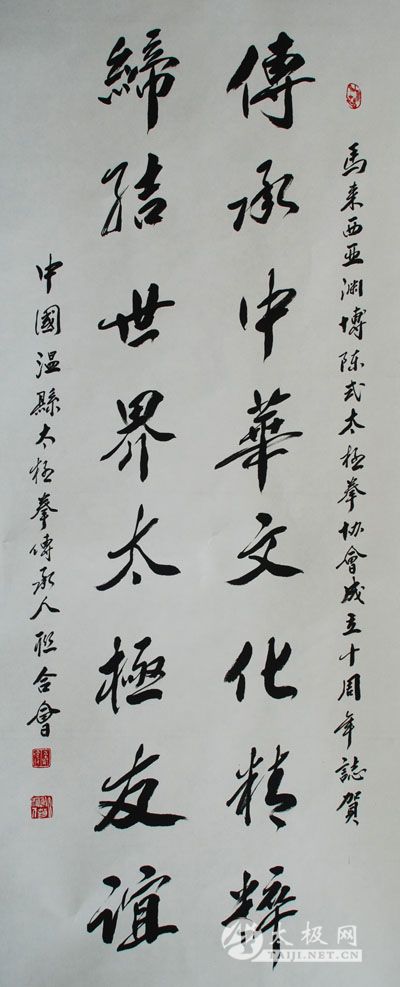 馬來西亞渊博陈式太极拳协會成立十周年誌賀
傳承中華文化精粹
締结世界太極友誼
中國温縣太极拳傳承人联合會
太极网
TAIJI.NET.CN